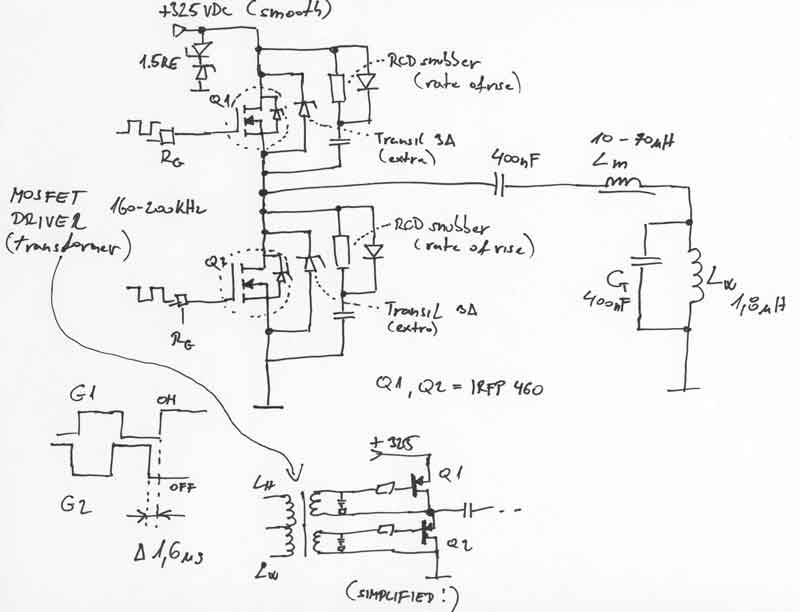 +325 VDC (smooth)
1.5KE
RCD snubber
(rate of rise)
Q1
RG
Transil 3A
(extra)
400nF
10-70µH
Lm
MOSFET
DRIVER
(transformer)
160-200kHz
RCD snubber
(rate of rise)
Q2
RG
Transil 3A
(extra)
CT
400nF
LW
1,8µH
Q1, Q2 = IRFP 460
G1
ON
G2
OFF
Δ 1,6µs
+ 325
Q1
Q2
(SIMPLIFIED!)